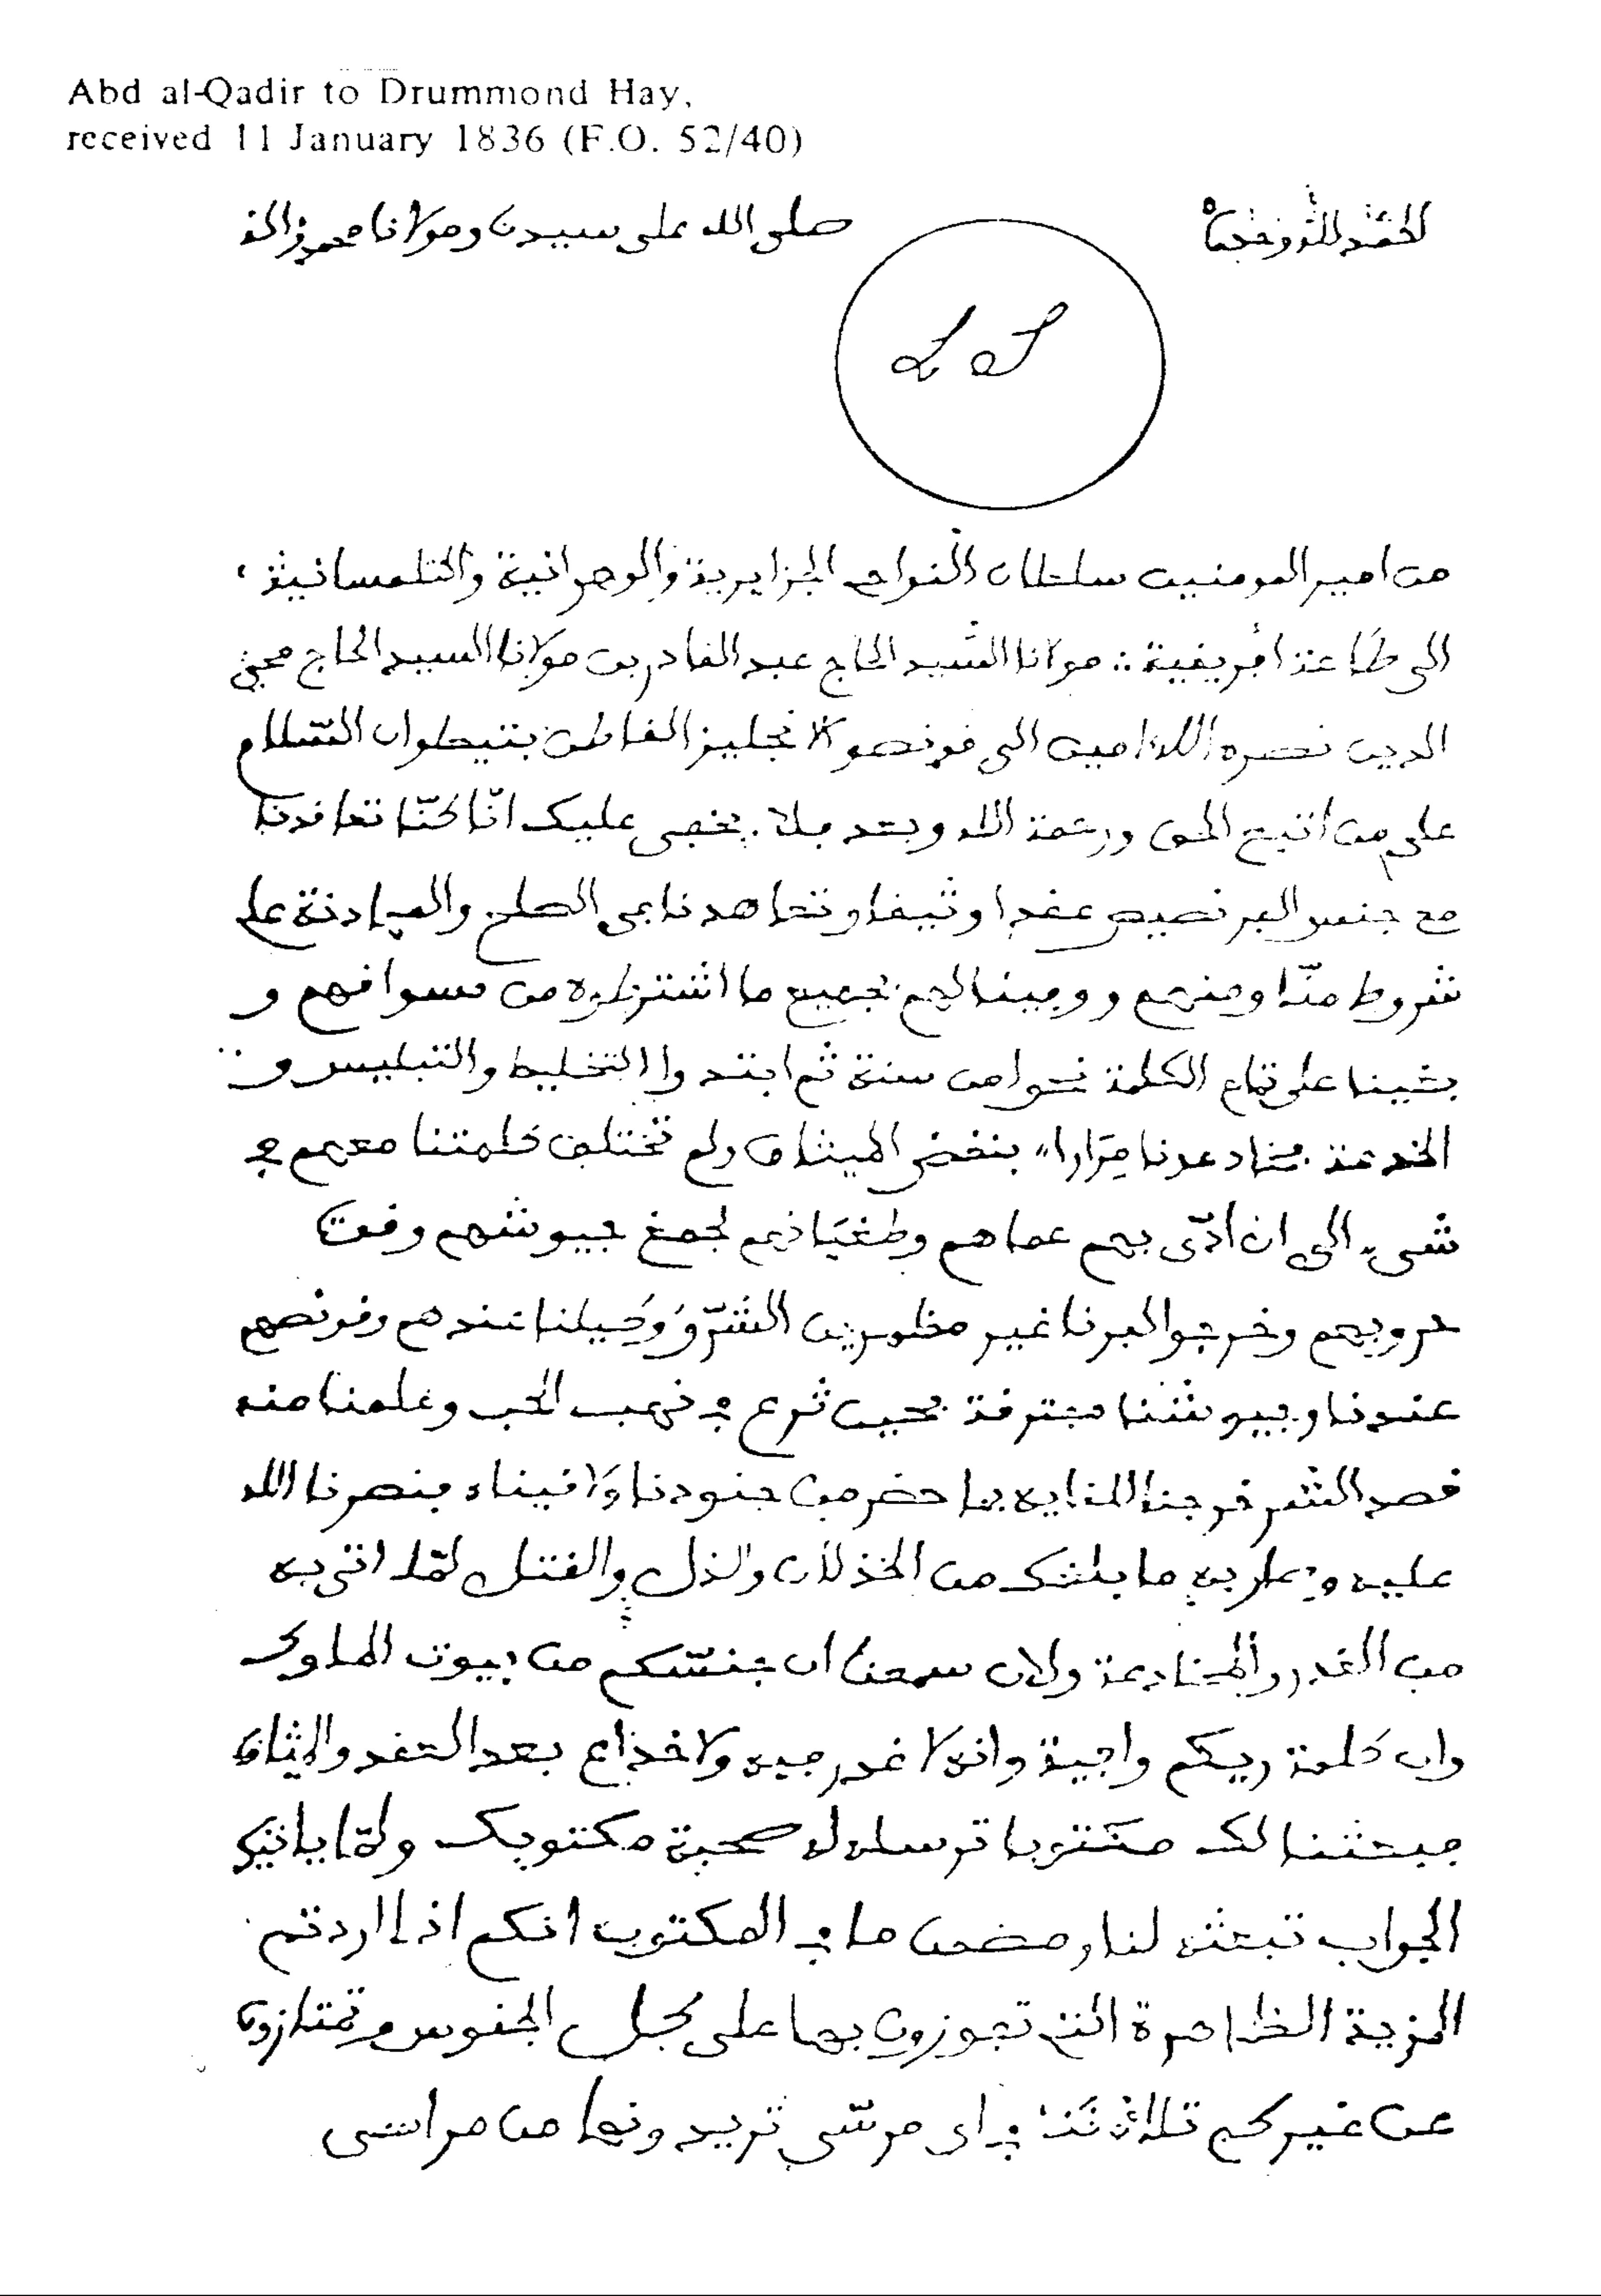 Abd al-Qadir to Drummond Hay,
received 11 January 1836 (F.O. 52/40)
الحمد لله وحده
صلى الله على سيدنا ومولانا محمد وءاله
L S
من امير المومنين سلطان النواحي الجزايرية والوهرانية والتلمسانية
الى طاعة افريقية مولانا السيد الحاج عبد القادر بن مولانا السيد الحاج محيي
الدين نصره الله امين الى فونصو الانجليز القاطن بتيطوان السلام
على من اتبع الحق ورحمة الله وبعد فلا يخفى عليك انّا كنّا تعاقدنا
مع جنس الفرنصيص عقدا وثيقا وتعاهدنا في الصلح والمهادنة على
شروط منّا ومنهم ووفينا لهم بجميع ما اشترطوه من سوافهم و
بقينا على تمام الكلمة نحوا من سنة ثم ابتدوا التخليط والتبليس و
الخدعة فخادعونا مرارا بنقض الميثاق ولم تختلف كلمتنا معهم في
شيء الى ان ادّى بهم عماهم وطغيانهم لجمع جيوشهم وقوت
حروبهم وخرجوا لبرنا غير مظهرين الشرّ ووكيلنا عندهم وقونصهم
عندنا وجيوشنا مفترقة بحيث شرع في نهب الحب وعلمنا منه
قصد الشر فخرجنا للقايه بما حضر من جنودنا ولاقيناه بنصرنا الله
عليه وصار به ما بلغك من الخذلان والذل والقتل لمّا اتى به
من الغدر والمخادعة ولان سمعنا ان جنسكم من بيوت الملوك
وان كلمة ريكم واجبة وانه لا غدر فيه ولا خداع بعد العقد والميثاق
فبعثنا لك مكتوبا ترسله له صحبة مكتوبك ولمّا ياتيك
الجواب تبعثه لنا ومضمن ما في المكتوب انكم اذا اردتم
المزية الظاهرة التي تفوزون بها على كل الجنوس وتمتازون
عن غيركم في اي مرسى تريدونها من مراسي